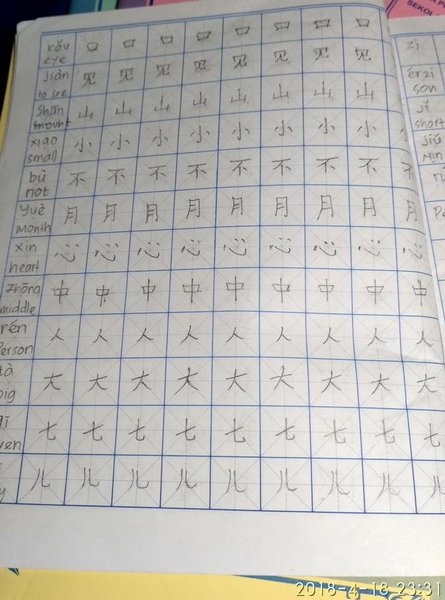 kǒu 口 口 口 口 口 口 口 口
eye
jiàn 见 见 见 见 见 见 见 见
to see
shān 山 山 山 山 山 山 山 山
mount
xiǎo 小 小 小 小 小 小 小 小 小
small
bù 不 不 不 不 不 不 不 不 不
not
Yuè 月 月 月 月 月 月 月 月 月
month
xīn 心 心 心 心 心 心 心 心 心
heart
Zhōng 中 中 中 中 中 中 中 中 中
middle
rén 人 人 人 人 人 人 人 人 人
Person
大 大 大 大 大 大 大 大 大
big
七 七 七 七 七 七 七 七 七
儿 儿 儿 儿 儿 儿 儿 儿 儿
érzi
son
short
jiǔ
SEKOL
2018-4-18 23:31